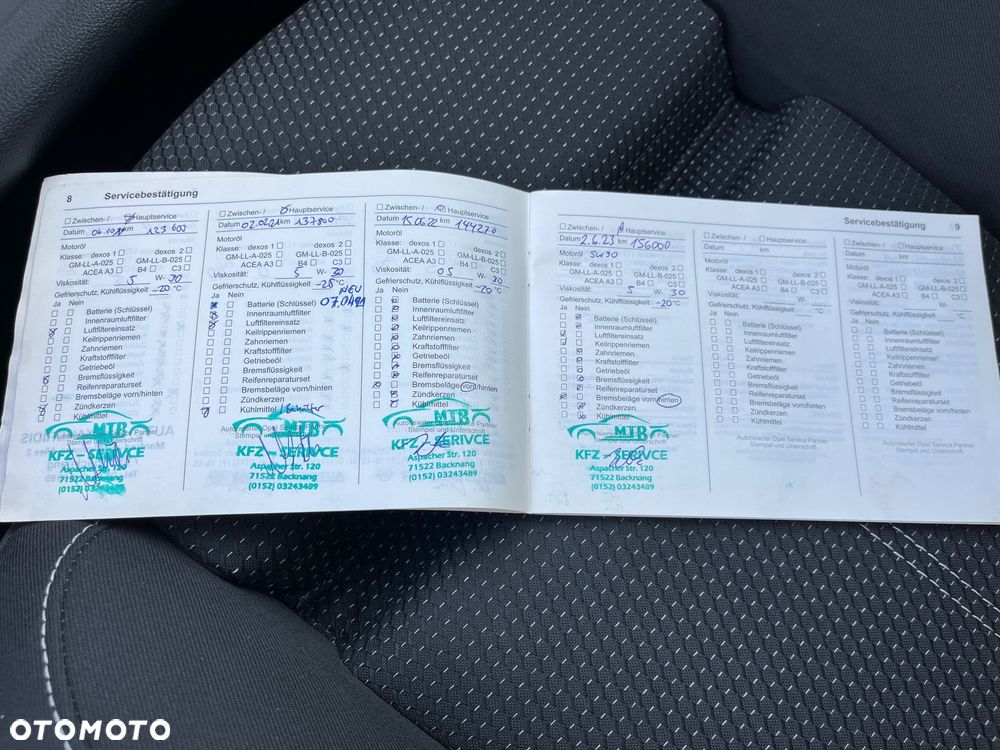 8 Servicebestätigung
Zwischen- / Hauptservice
Datum km 123 600
Motoröl
Klasse: dexos 1 dexos 2
GM-LL-A-025 GM-LL-B-025
ACEA A3 B4 C3
Viskosität: 5 W- 30
Gefrierschutz, Kühlflüssigkeit -20 °C
Ja Nein
Batterie (Schlüssel)
Innenraumluftfilter
Luftfiltereinsatz
Keilrippenriemen
Zahnriemen
Kraftstofffilter
Getriebeöl
Bremsflüssigkeit
Reifenreparaturset
Bremsbeläge vorn/hinten
Zündkerzen
Kühlmittel
MTB
KFZ - SERIVCE
Aspacher Str. 120
71522 Backnang
(0152) 03243489
Zwischen- / Hauptservice
Datum 02.02.21 km 137800
Motoröl
Klasse: dexos 1 dexos 2
GM-LL-A-025 GM-LL-B-025
ACEA A3 B4 C3
Viskosität: 5 W- 30
Gefrierschutz, Kühlflüssigkeit °C
Ja Nein NEU
Batterie (Schlüssel)
Innenraumluftfilter
Luftfiltereinsatz
Keilrippenriemen
Zahnriemen
Kraftstofffilter
Getriebeöl
Bremsflüssigkeit
Reifenreparaturset
Bremsbeläge vorn/hinten
Zündkerzen
Kühlmittel
MTB
KFZ - SERIVCE
Aspacher Str. 120
71522 Backnang
(0152) 03243489
Zwischen- / Hauptservice
Datum 15.06.22 km 144270
Motoröl
Klasse: dexos 1 dexos 2
GM-LL-A-025 GM-LL-B-025
ACEA A3 B4 C3
Viskosität: 05 W- 30
Gefrierschutz, Kühlflüssigkeit -20 °C
Ja Nein
Batterie (Schlüssel)
Innenraumluftfilter
Luftfiltereinsatz
Keilrippenriemen
Zahnriemen
Kraftstofffilter
Getriebeöl
Bremsflüssigkeit
Reifenreparaturset
Bremsbeläge vorn/hinten
Zündkerzen
Kühlmittel
MTB
KFZ - SERIVCE
Aspacher Str. 120
71522 Backnang
(0152) 03243489
Servicebestätigung 9
Zwischen- / Hauptservice
Datum 2.6.23 km 156000
Motoröl 5W30
Klasse: dexos 1 dexos 2
GM-LL-A-025 GM-LL-B-025
ACEA A3 B4 C3
Viskosität: 5 W- 30
Gefrierschutz, Kühlflüssigkeit -20 °C
Ja Nein
Batterie (Schlüssel)
Innenraumluftfilter
Luftfiltereinsatz
Keilrippenriemen
Zahnriemen
Kraftstofffilter
Getriebeöl
Bremsflüssigkeit
Reifenreparaturset
Bremsbeläge vorn/hinten
Zündkerzen
Kühlmittel
MTB
KFZ - SERIVCE
Aspacher Str. 120
71522 Backnang
(0152) 03243489
Zwischen- / Hauptservice
Datum km
Motoröl
Klasse: dexos 1 dexos 2
GM-LL-A-025 GM-LL-B-025
ACEA A3 B4 C3
Viskosität: W-
Gefrierschutz, Kühlflüssigkeit °C
Ja Nein
Batterie (Schlüssel)
Innenraumluftfilter
Luftfiltereinsatz
Keilrippenriemen
Zahnriemen
Kraftstofffilter
Getriebeöl
Bremsflüssigkeit
Reifenreparaturset
Bremsbeläge vorn/hinten
Zündkerzen
Kühlmittel
Autorisierter Opel Service Partner
Stempel und Unterschrift
Zwischen- / Hauptservice
Datum km
Motoröl
Klasse: dexos 1 dexos 2
GM-LL-A-025 GM-LL-B-025
ACEA A3 B4 C3
Viskosität: W-
Gefrierschutz, Kühlflüssigkeit °C
Ja Nein
Batterie (Schlüssel)
Innenraumluftfilter
Luftfiltereinsatz
Keilrippenriemen
Zahnriemen
Kraftstofffilter
Getriebeöl
Bremsflüssigkeit
Reifenreparaturset
Bremsbeläge vorn/hinten
Zündkerzen
Kühlmittel
Autorisierter Opel Service Partner
Stempel und Unterschrift
OTOMOTO